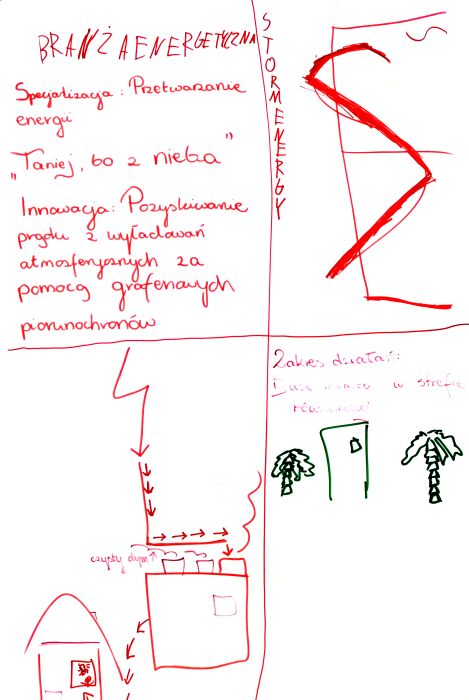 BRANŻA ENERGETYCZNA
Specjalizacja: Przetwarzanie
energii
"Taniej, bo z nieba"
Innowacja: Pozyskiwanie
prądu z wyładowań
atmosferycznych za
pomocą grafenowych
piorunochronów
STORM ENERGY
Zakres działań:
Duże miasta w strefie
równikowej
czysty dym